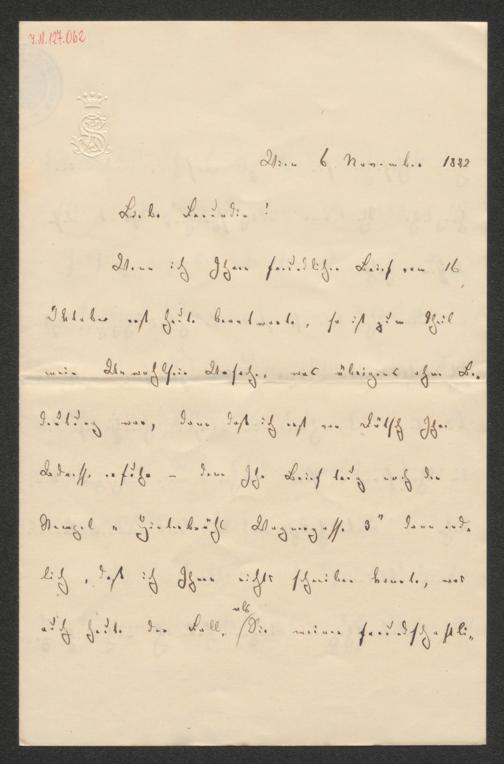 J.N. 127.062
Wien 6 November 1882
Liebe Freundin!
Wenn ich Ihren freundlichen Brief vom 16
Oktober erst heute beantworte, so ist zum Theil
mein Unwohlsein Ursache, was übrigens ohne Be-
deutung war, dann daß ich erst von Dütsch Ihre
Adresse erfuhr – denn Ihr Brief trug noch den
Stempel „Hinterbrühl Wagnergasse 3" dann end-
lich, daß ich Ihnen nichts schreiben konnte, was
auch heute der Fall, als Sie meiner freundschaftli-